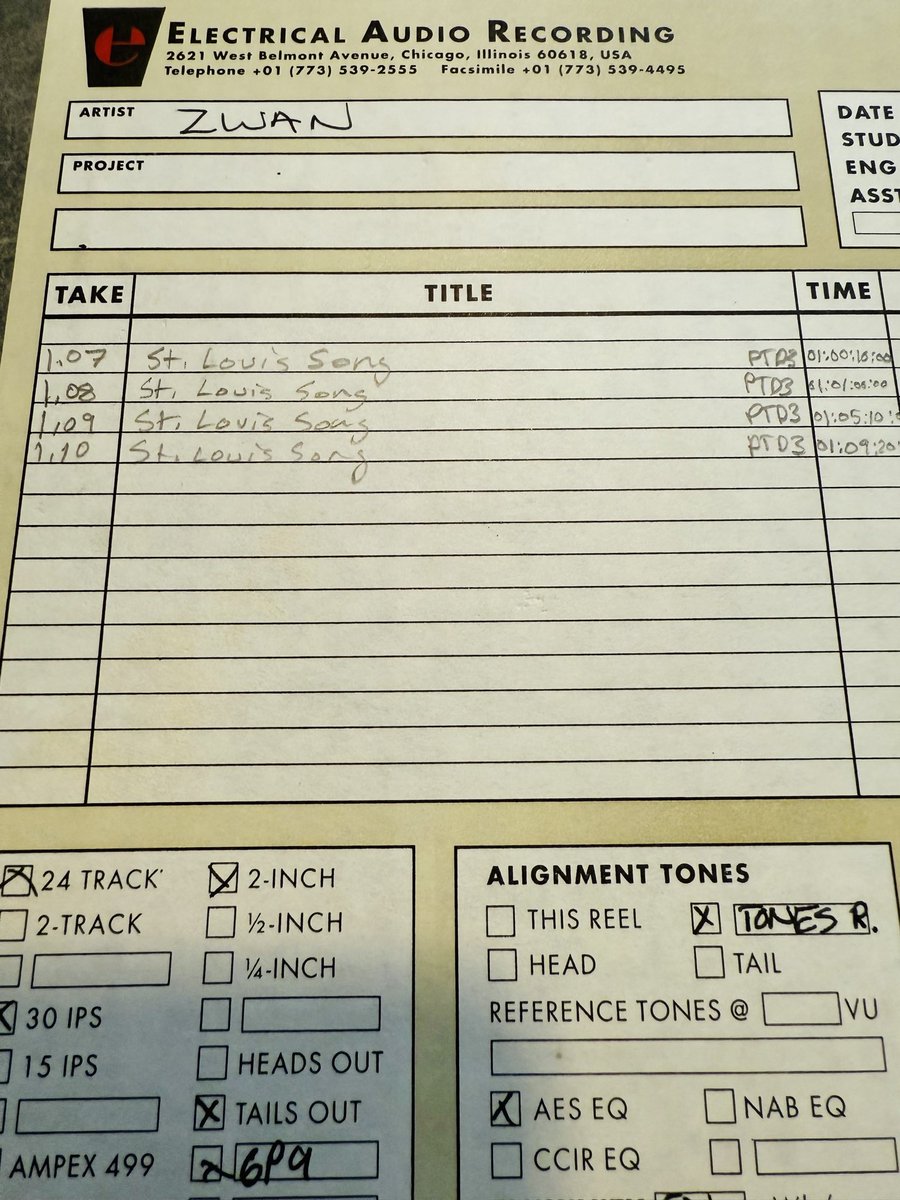 e ELECTRICAL AUDIO RECORDING
2621 West Belmont Avenue, Chicago, Illinois 60618, USA
Telephone +01 (773) 539-2555 Facsimile +01 (773) 539-4495
ARTIST ZWAN
DATE
STUD
ENG
ASST
PROJECT
TAKE TITLE TIME
1.07 St. Louis Song PTD3 01:00:10:00
1.08 St. Louis Song PTD3
1.09 St. Louis Song PTD3 01:05:10:
1.10 St. Louis Song PTD3 01:09:20
24 TRACK 2-INCH
2-TRACK ½-INCH
¼-INCH
30 IPS
15 IPS HEADS OUT
TAILS OUT
AMPEX 499 GP9
ALIGNMENT TONES
THIS REEL TONES R.
HEAD TAIL
REFERENCE TONES @ VU
AES EQ NAB EQ
CCIR EQ